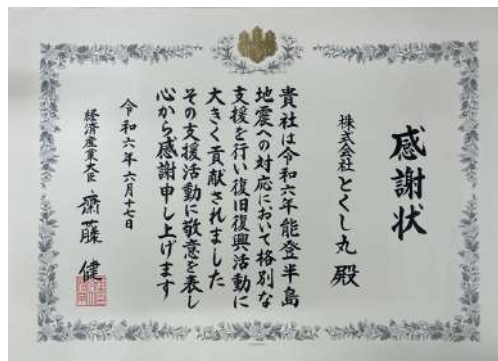 感謝状
株式会社 とくし丸 殿
貴社は令和六年能登半島
地震への対応において格別な
支援を行い復旧復興活動に
大きく貢献されました
その支援活動に敬意を表し
心から感謝申し上げます
令和六年六月十七日
経済産業大臣 齋藤 健